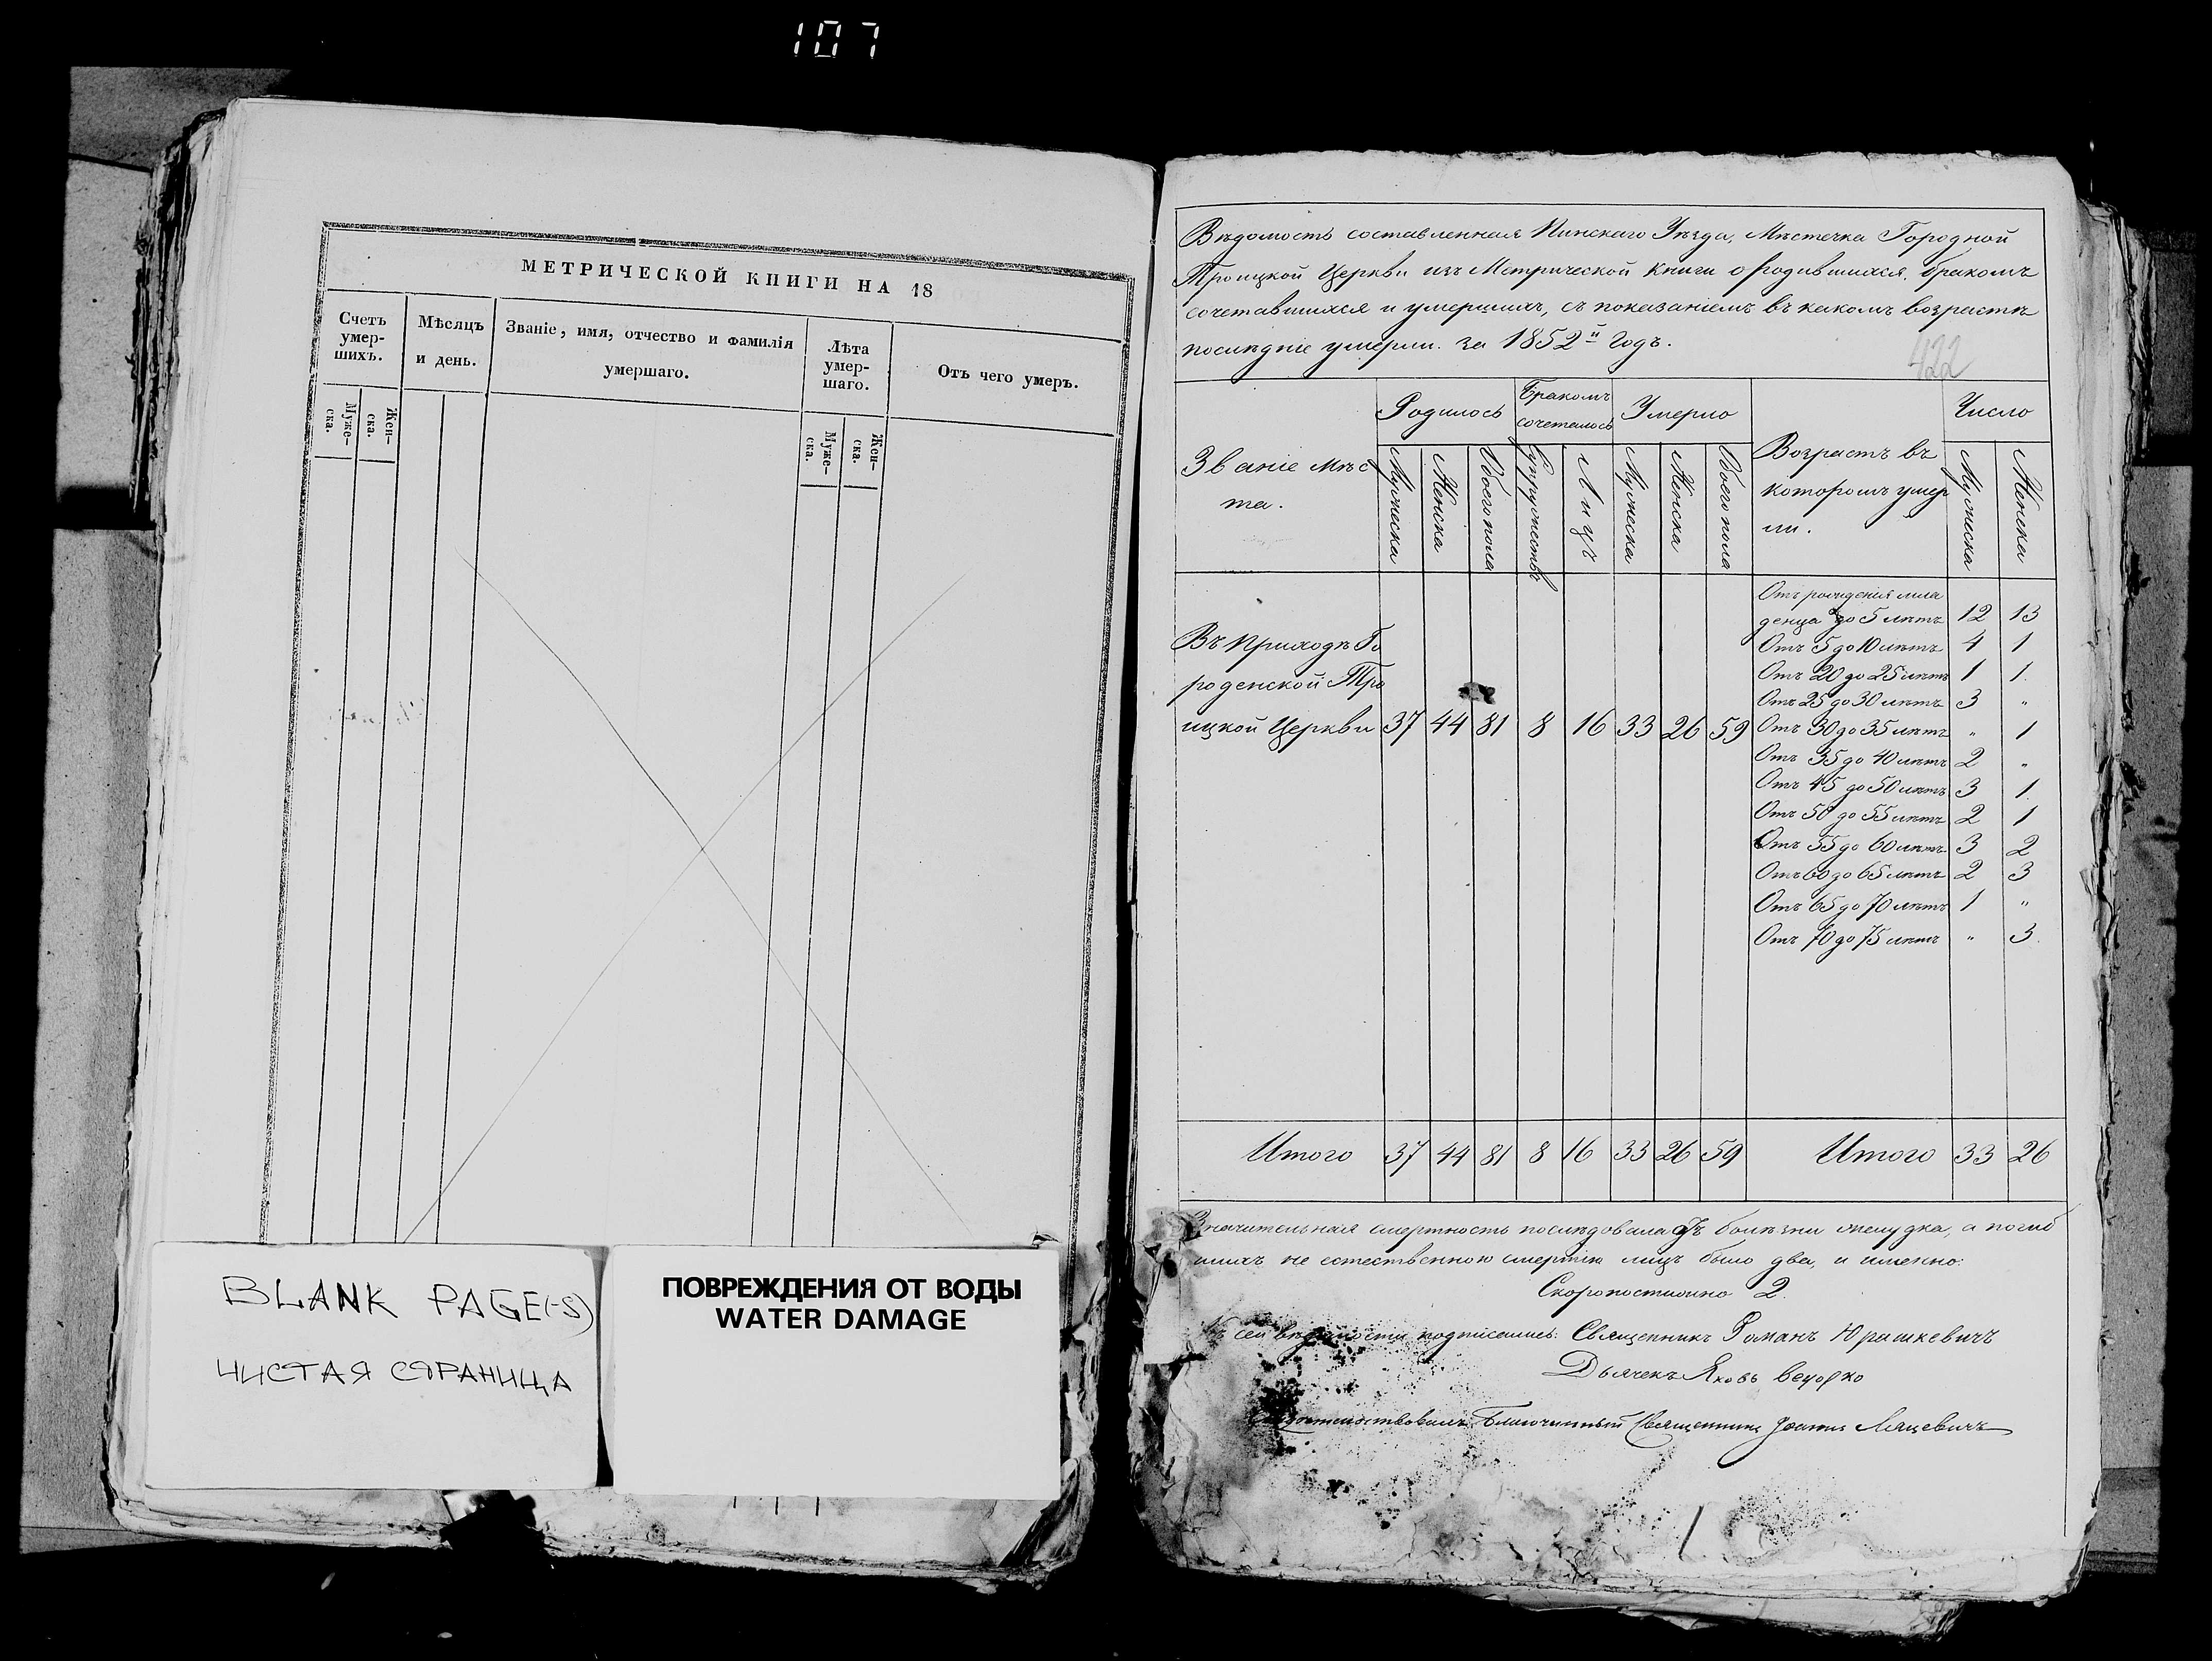 107
МЕТРИЧЕСКОЙ КНИГИ НА 18
Счетъ умер-шихъ.
Мѣсяцъ и день.
Званіе, имя, отчество и фамилія умершаго.
Лѣта умер-шаго.
Отъ чего умеръ.
Муже-ска.
Жен-ска.
Муже-ска.
Жен-ска.
BLANK PAGE(-S)
ЧИСТАЯ СТРАНИЦА
ПОВРЕЖДЕНИЯ ОТ ВОДЫ
WATER DAMAGE
Вѣдомость составленная Пинскаго Уѣзда, Мѣстечка Городной
Троицкой Церкви изъ Метрической Книги о родившихся, бракомъ
сочетавшихся и умершихъ, съ показаніемъ въ какомъ возрастѣ
послѣдніе умерли. за 1852й Годъ.
422
Званіе Мѣс
та.
Родилось
Бракомъ
сочеталось
Умерло
Возрастъ въ
которомъ умер
ли.
Число
Мужеска
Женска
Обоего пола
Супружествъ
Лицъ
Мужеска
Женска
Обоего пола
Мужска
Женска
Отъ рожденія мла
денца до 5 лѣтъ 12 13
Отъ 5 до 10 лѣтъ 4 1
Отъ 20 до 25 лѣтъ 1 1
Отъ 25 до 30 лѣтъ 3 "
Въ Приходѣ Го
роденской Тро
ицкой Церкви 37 44 81 8 16 33 26 59
Отъ 30 до 35 лѣтъ " 1
Отъ 35 до 40 лѣтъ 2 "
Отъ 45 до 50 лѣтъ 3 1
Отъ 50 до 55 лѣтъ 2 1
Отъ 55 до 60 лѣтъ 3 2
Отъ 60 до 65 лѣтъ 2 3
Отъ 65 до 70 лѣтъ 1 "
Отъ 70 до 75 лѣтъ " 3.
Итого 37 44 81 8 16 33 26 59 Итого 33 26
Значительная смертность послѣдовала отъ болѣзни желудка, а погиб
шихъ не естественною смертію лицъ было два, и именно:
Скоропостижно 2.
Къ сей вѣдомости подписались: Священникъ Романъ Юрашкевичъ
Дьячекъ Яковъ
Свидѣтельствовалъ Благочинный Священникъ Іоаннъ Ляцевичъ